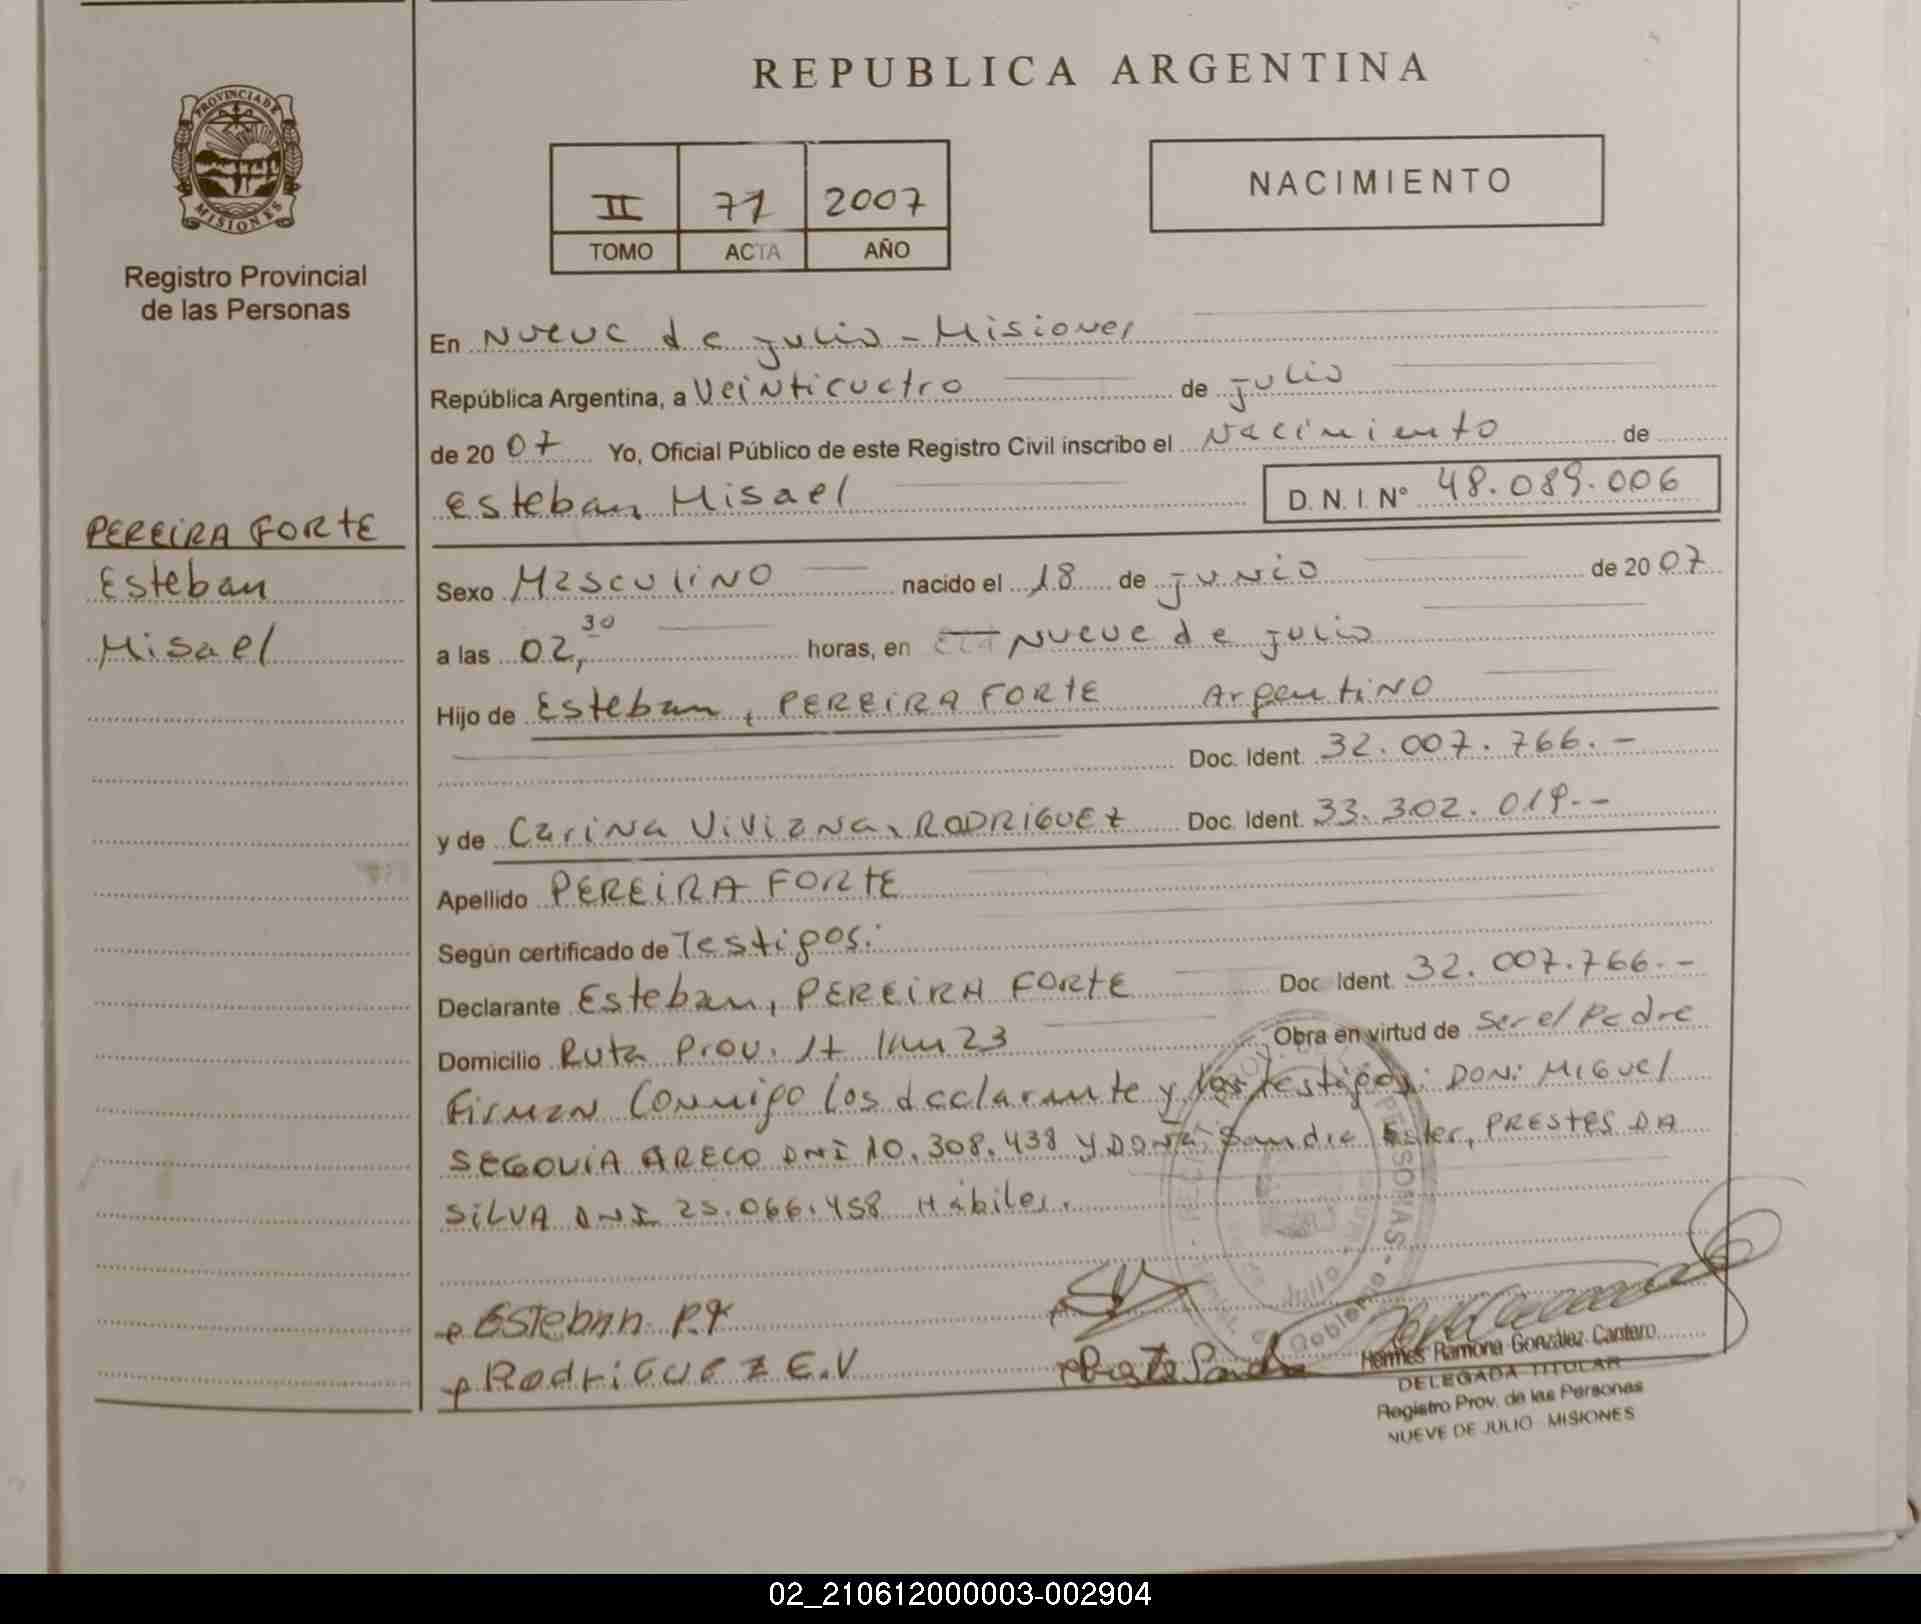 REPUBLICA ARGENTINA
PROVINCIA DE
MISIONES
Registro Provincial
de las Personas
II 71 2007
TOMO ACTA AÑO
NACIMIENTO
En Nueve de julio - Misiones
República Argentina, a Veinticuatro de julio
de 2007 Yo, Oficial Público de este Registro Civil inscribo el Nacimiento de
Esteban Misael D.N.I. N° 48.089.006
PEREIRA FORTE
Esteban
Misael
Sexo Masculino nacido el 18 de junio de 2007
a las 02,30 horas, en Nueve de julio
Hijo de Esteban, PEREIRA FORTE Argentino
Doc. Ident. 32.007.766.-
y de Carina Viviana, RODRIGUEZ Doc. Ident. 33.302.019.--
Apellido PEREIRA FORTE
Según certificado de Testigos.
Declarante Esteban, PEREIRA FORTE Doc. Ident. 32.007.766.-
Domicilio Ruta Prov. 17 Km 23 Obra en virtud de ser el Padre
Firman Conmigo los declarante y los testigos: DON: MIGUEL
SEGOVIA ARECO DNI 10.308.438 y DOÑA: Sandra Ester, PRESTES DA
SILVA DNI 25.066.458 Hábiles.
Esteban P.F
RodriGUEZ C.V
Hermes Ramona González Cantero
DELEGADA TITULAR
Registro Prov. de las Personas
NUEVE DE JULIO - MISIONES
02_210612000003-002904